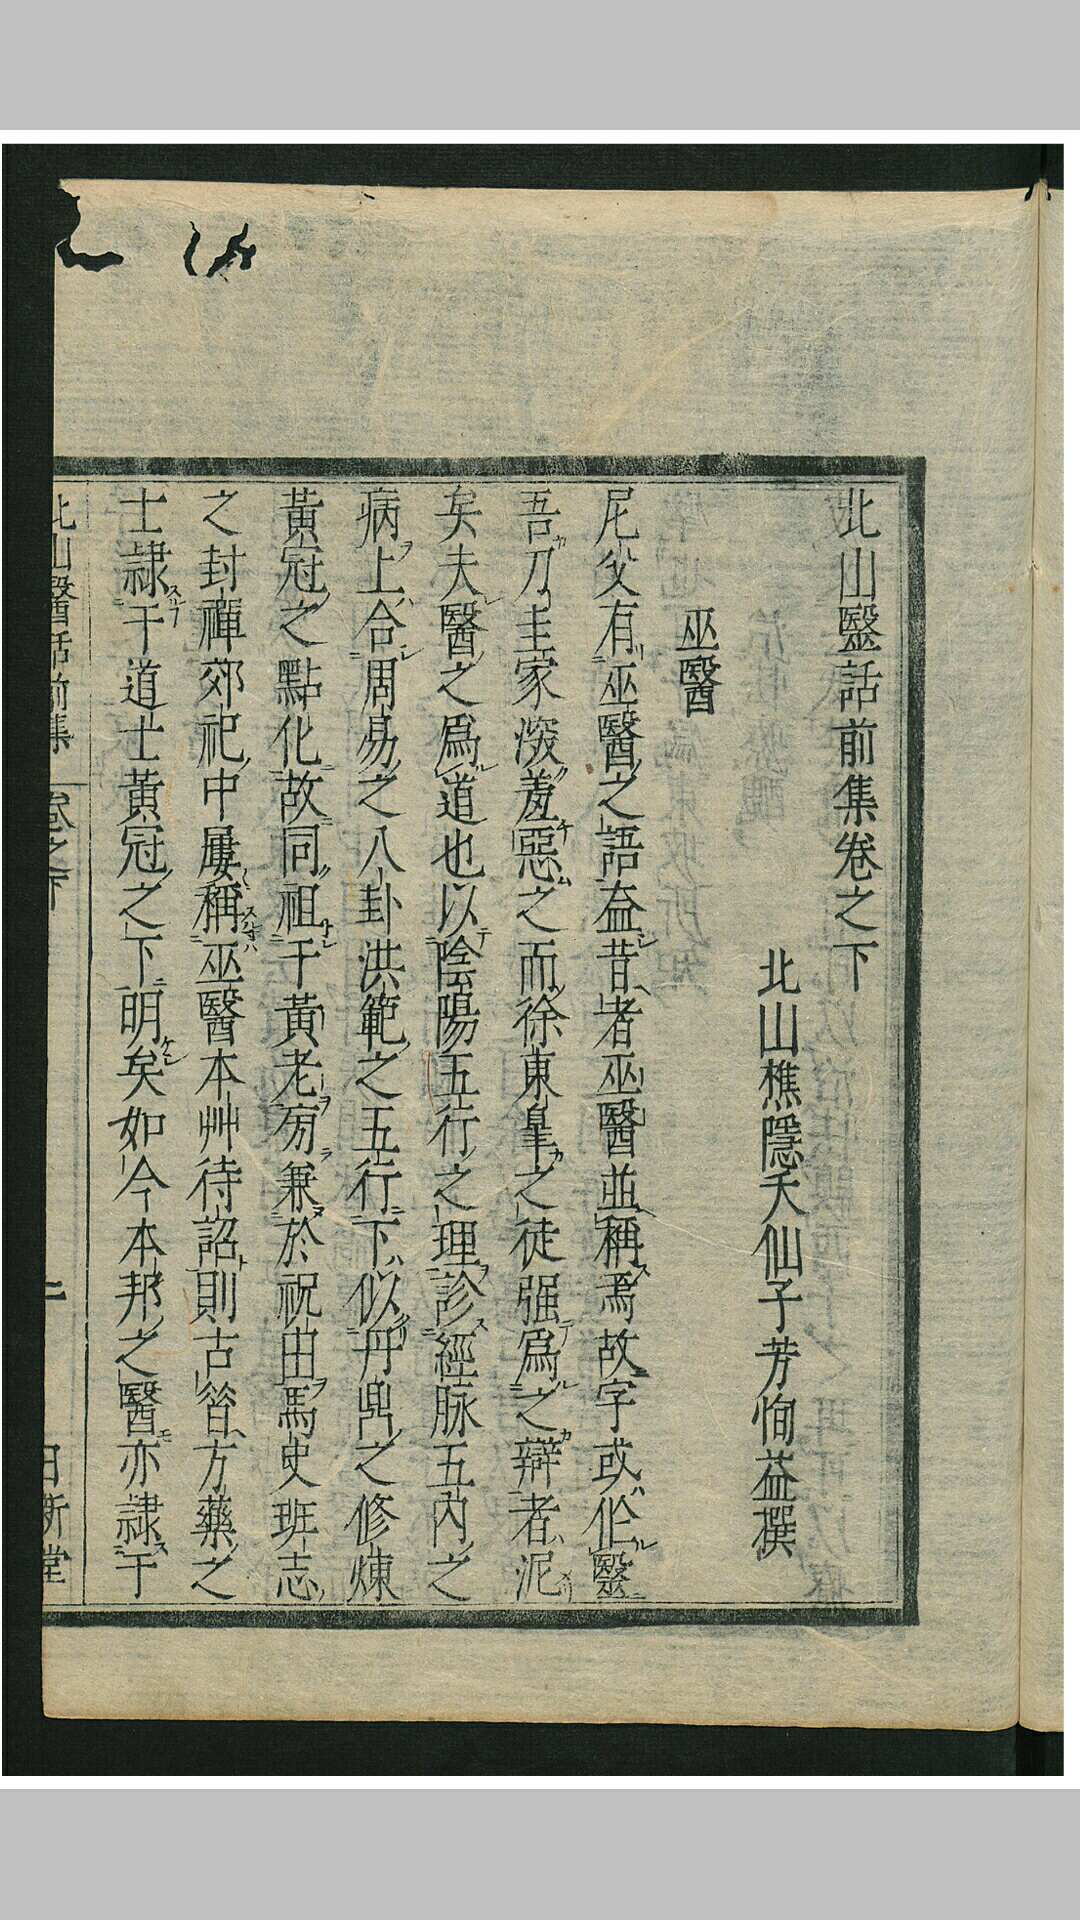 北山毉話前集卷之下
北山樵隱天仙子芳恂益撰
巫醫
尼父有巫醫之語葢昔者巫醫並稱焉故字或作毉
吾刀圭家深羞惡之而徐東皐之徒强爲之辯者泥
矣夫醫之爲道也以陰陽五行之理診經脉五內之
病上合周易之八卦洪範之五行下似丹鼎之修煉
黃冠之點化故同祖于黃老㫄兼於祝由馬史班志
之封禪郊祀中屢稱巫醫本艸待詔則古昔方藥之
士隷于道士黃冠之下明矣如今本邦之醫亦隷于
北山醫話前集 卷之下 一 日新堂